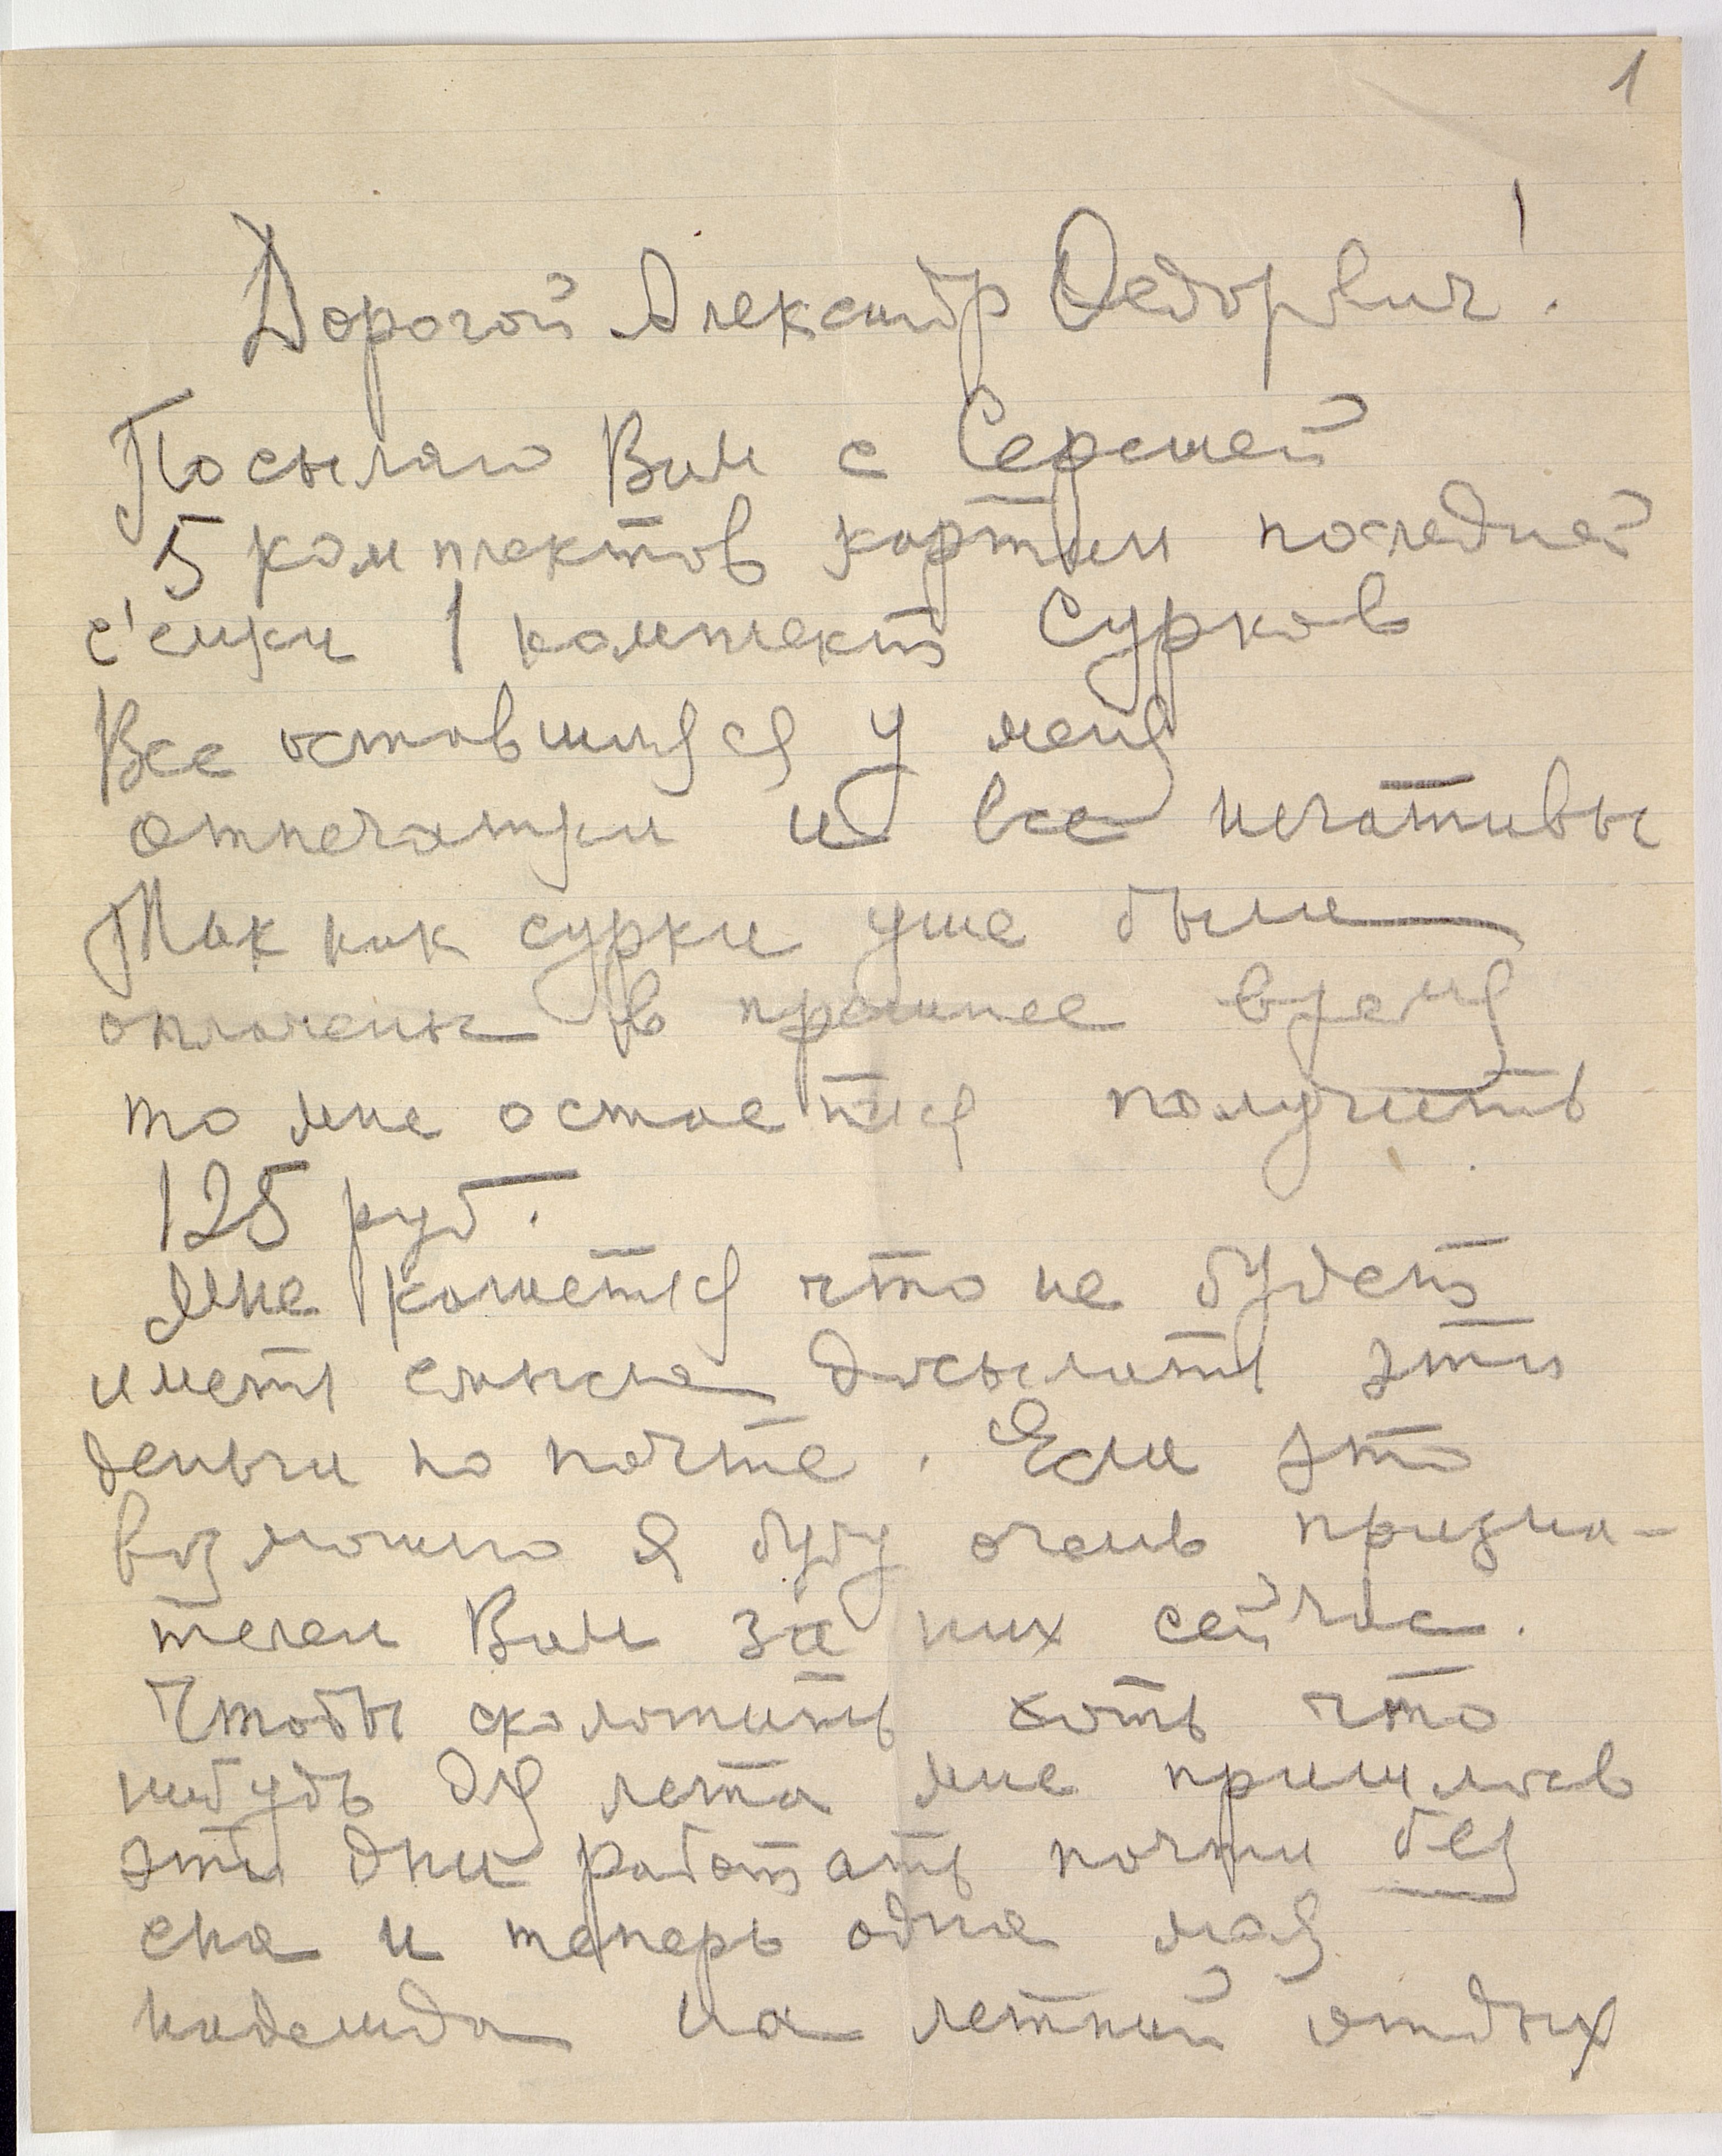 1
Дорогой Александр Федорвич!
Посылаю Вам с Сережей
5 комплектов картин последней
с'емки 1 комплект Сурков
Все оставшиеся у меня
отпечатки и все негативы
Так как сурки уже были
оплачены в прошлое время
то мне остается получить
125 руб.
Мне кажется что не будет
иметь смысла досылать эти
деньги по почте. Если это
возможно я буду очень призна-
телен Вам за них сейчас.
Чтобы сколотить хоть что
нибудь для лета мне пришлось
эти дни работать почти без
сна и теперь одна моя
надежда на летний отдых